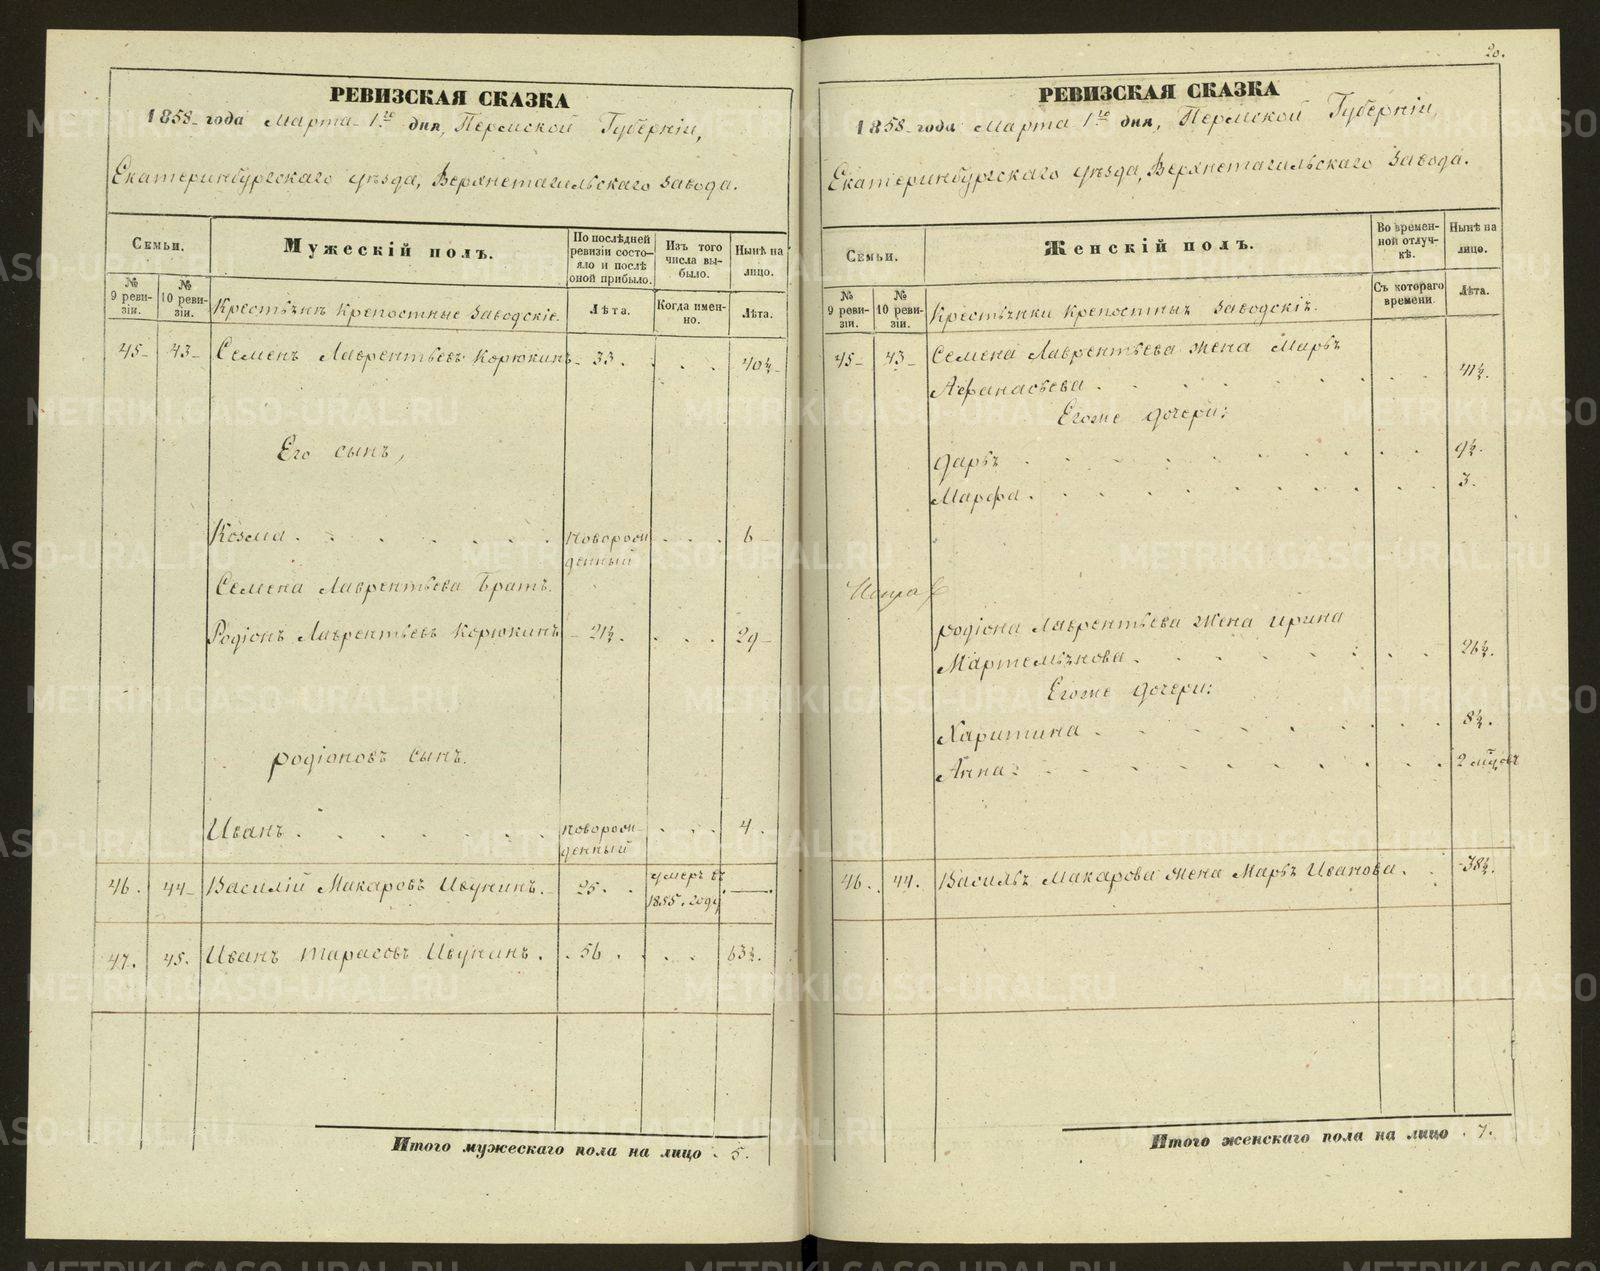 20.
РЕВИЗСКАЯ СКАЗКА
1858 года Марта 1го дня, Пермской Губерніи,
Екатеринбургскаго уѣзда, Верхнетагильскаго Завода.
Семьи.
Мужескій полъ.
По послѣдней ревизіи состояло и послѣ оной прибыло.
Изъ того числа выбыло.
Нынѣ на лицо.
№ 9 ревизіи.
№ 10 ревизіи.
Крестьянѣ Крепостные Заводскіе.
Лѣта.
Когда именно.
Лѣта.
45 43 Семенъ Лаврентьевъ Корюкинъ 33. 40½
Его сынъ,
Козма новорожденный 6
Семена Лаврентьева Братъ.
Родіонъ Лаврентьевъ Корюкинъ 21½. 29
Родіоновъ сынъ.
Иванъ новорожденный 4.
46. 44 Василій Макаровъ Ивунинъ. 25. умеръ въ 1855. году —
47. 45. Иванъ Тарасовъ Ивунинъ. 56. 63½.
Итого мужескаго пола на лицо 5.
РЕВИЗСКАЯ СКАЗКА
1858 года Марта 1го дня, Пермской Губерніи,
Екатеринбургскаго уѣзда, Верхнетагильскаго Завода.
Семьи.
Женскій полъ.
Во временной отлучкѣ.
Нынѣ на лицо.
№ 9 ревизіи.
№ 10 ревизіи.
Крестьянки Крепостныя Заводскія.
Съ котораго времени.
Лѣта.
45 43 Семена Лаврентьева жена Марья
Афанасьева. 41½.
Егоже дочери:
Дарья 9½.
Марфа. 3.
Родіона Лаврентьева жена Ирина
Мартемьянова. 26½.
Егоже дочери:
Харитина 8½.
Анна 2 мцовъ
46. 44. Василья Макарова жена Марья Иванова. 38½.
Итого женскаго пола на лицо 7.
METRIKI.GASO-URAL.RU